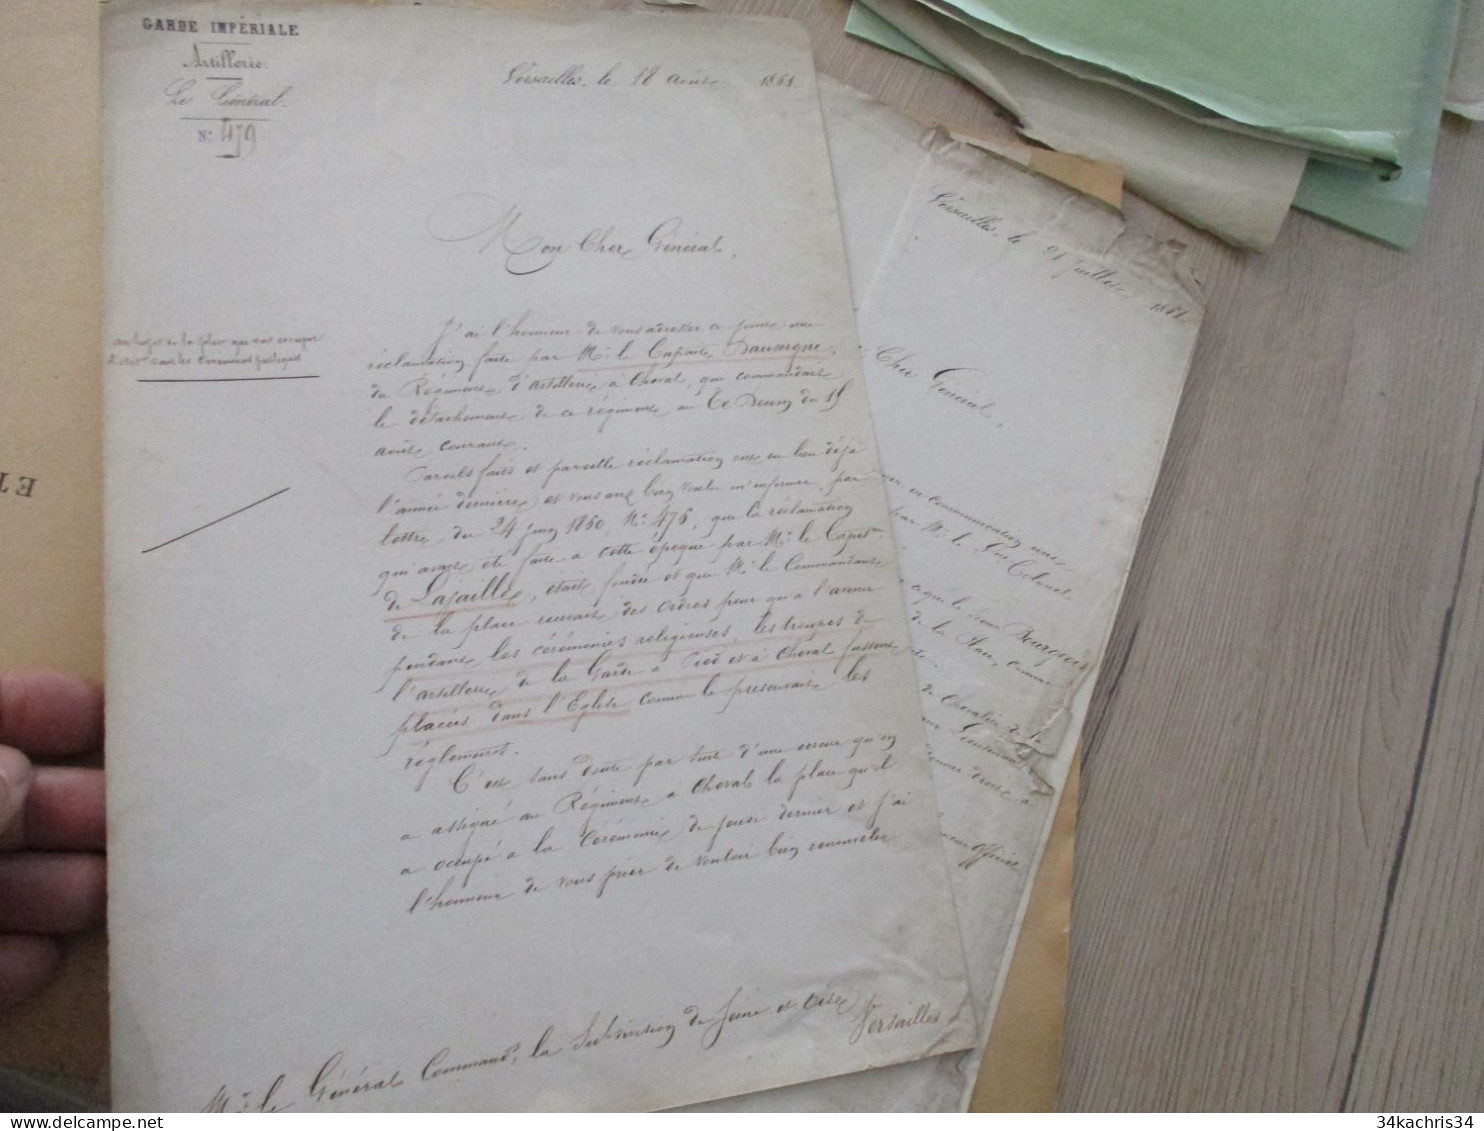 GARDE IMPÉRIALE
Artillerie
Le Général
N° 479
Versailles, le 18 août 1861
Mon Cher Général,
au sujet de la place que doit occuper
dans les cérémonies publiques
J'ai l'honneur de vous adresser ci joint une
réclamation faite par Mr. le Capitaine Dauvergne,
du Régiment d'artillerie à Cheval, qui commandait
le détachement de ce régiment au Te Deum du 15
août courant.
Pareils faits et pareille réclamation ont eu lieu déjà
l'année dernière et vous avez bien voulu m'informer, par
lettre du 24 juin 1860, N° 476, que la réclamation
qui avait été faite à cette époque par Mr. le Capitne
de Lajaille, était fondée et que Mr. le Commandant
de la place recevait des ordres pour qu'à l'avenir
pendant les cérémonies religieuses, les troupes de
l'artillerie de la Garde à Pied et à Cheval fussent
placées dans l'Eglise comme le prescrivait les
règlements.
C'est sans doute par suite d'une erreur qu'on
a assigné au Régiment à Cheval la place qu'il
a occupé à la cérémonie de jeudi dernier et j'ai
l'honneur de vous prier de vouloir bien renouveler
Mr. le Général Commandt. la Subdivision de Seine et Oise à
Versailles
Versailles, le 21 Juillet 1861
Cher Général,
en communication une
par Mr. le Lt Colonel
que le Sieur Bourgeois
de la
de Chevalier de la
Lieutenant
donner droit à
Officiel
ET
34kachris34